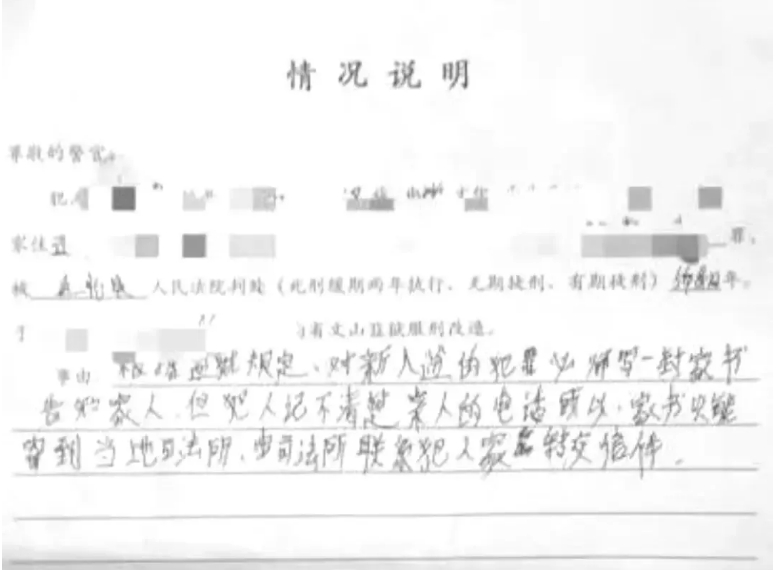 情况说明
尊敬的警官：
犯人
家住 罪，
被 人民法院判处（死刑缓期两年执行、无期徒刑、有期徒刑） 年。
于 省文山监狱服刑改造。
事由 根据监狱规定、对新入监的犯罪必须写一封家书
告知家人，但犯人记不清楚亲人的电话所以，家书只能
寄到当地司法所，由司法所联系犯人家属转交信件。